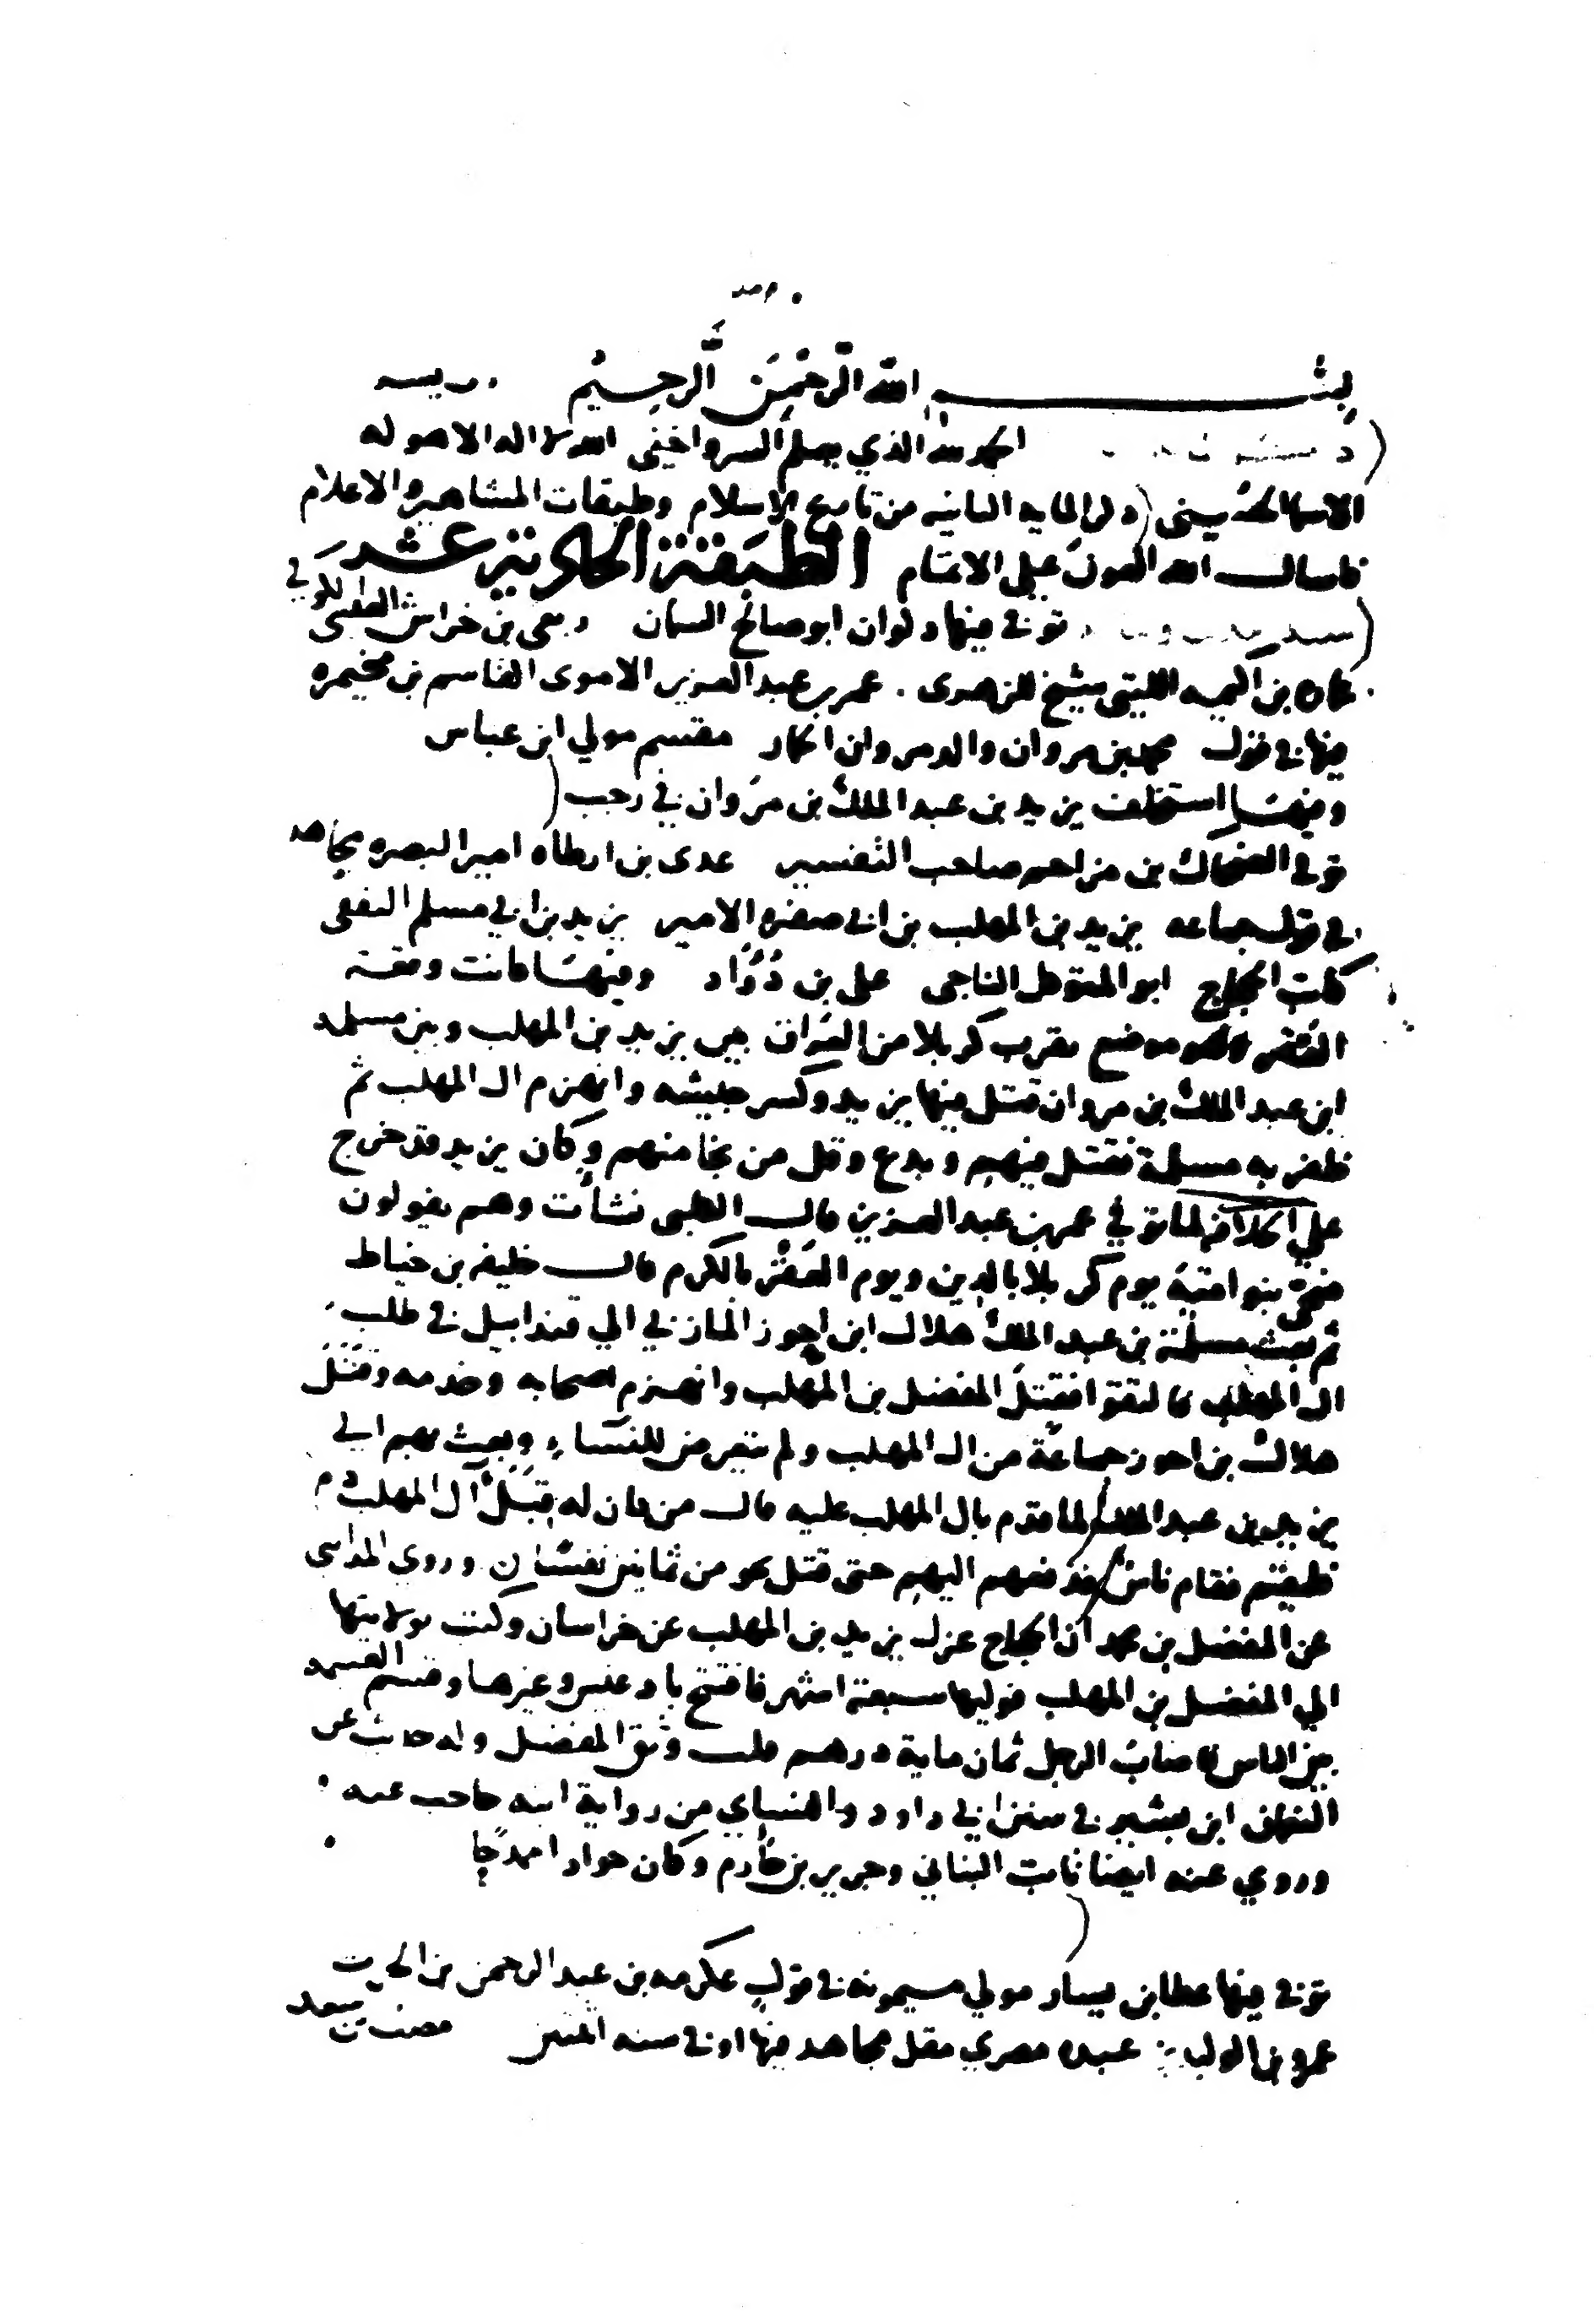 بسم الله الرحمن الرحيم
الحمد لله الذي يعلم السر واخفى الله لا اله الا هو له
الاسما الحسنى من تاريخ الاسلام وطبقات المشاهير والاعلام
فاسال الله العون على الاتمام الطبقة الحادية عشر
توفي فيها دلوان ابو صالح السمان ربعي بن خراش
عماره بن اكيمه الليثي شيخ للزهري . عمر بن عبد العزيز الاموي القاسم بن مخيمره
فيها في قول محمد بن مروان والد مروان الحمار مقسم مولي ابن عباس
وفيها استخلف يزيد بن عبد الملك بن مروان في رجب
توفي الضحاك بن مزاحم صاحب التفسير عدي بن ارطاه امير البصره مجاهد
في قول جماعه يزيد بن المهلب بن ابي صفره الامير يزيد بن ابي مسلم الثقفي
كاتب الحجاج ابو المتوكل الناجي علي بن دؤاد وفيها كانت وقعة
العقر وهو موضع بقرب كربلا من العراق بين يزيد بن المهلب وبين مسلمه
ابن عبد الملك بن مروان قتل فيها يزيد وكسر جيشه وانهزم ال المهلب ثم
ظفر به مسلمة فقتل فيهم وبدع وقل من نجا منهم وكان يزيد قد خرج
علي الخلافة لما توفي عمر بن عبد العزيز قال الكلبي نشات وهم يقولون
ضحى بنو امية يوم كربلا بالدين ويوم العقر بالكرم قال خليفه بن خياط
ثم بعث مسلمة بن عبد الملك هلال ابن احوز المازني الي قندابيل في طلب
ال المهلب فالتقوا فقتل المفضل بن المهلب وانهزم اصحابه وخدمه وقتل
هلال بن احوز جماعة من ال المهلب ولم يتعرض للنساء وبعث بهم الي
يزيد بن عبد الملك لما قدم بال المهلب عليه قال من كان له قبل ال المهلب دم
فليقم فقام ناس فدفعهم اليهم حتى قتل نحو من ثمانين نفسا وروي المدايني
عن المفضل بن محمد ان الحجاج عزل يزيد بن المهلب عن خراسان وكتب بولايتها
الي المفضل بن المهلب فوليها سبعة اشهر فافتتح بادغيس وغيرها وقسم
بين الناس فاصاب الرجل ثمان ماية درهم قلت وثق المفضل وله حديث عن
النعمان ابن بشير في سنن ابي داود والنساي من رواية ابنه حاجب عنه
وروي عنه ايضا ثابت البناني وجرير بن حازم وكان جوادا ممدحا
توفي فيها عطا بن يسار مولي ميمونه في قول عكرمه بن عبد الرحمن بن الحرث
عمرو بن الوليد بن عبده مصري مقل مجاهد فيها او في سنه اثنتين مصعب بن سعد